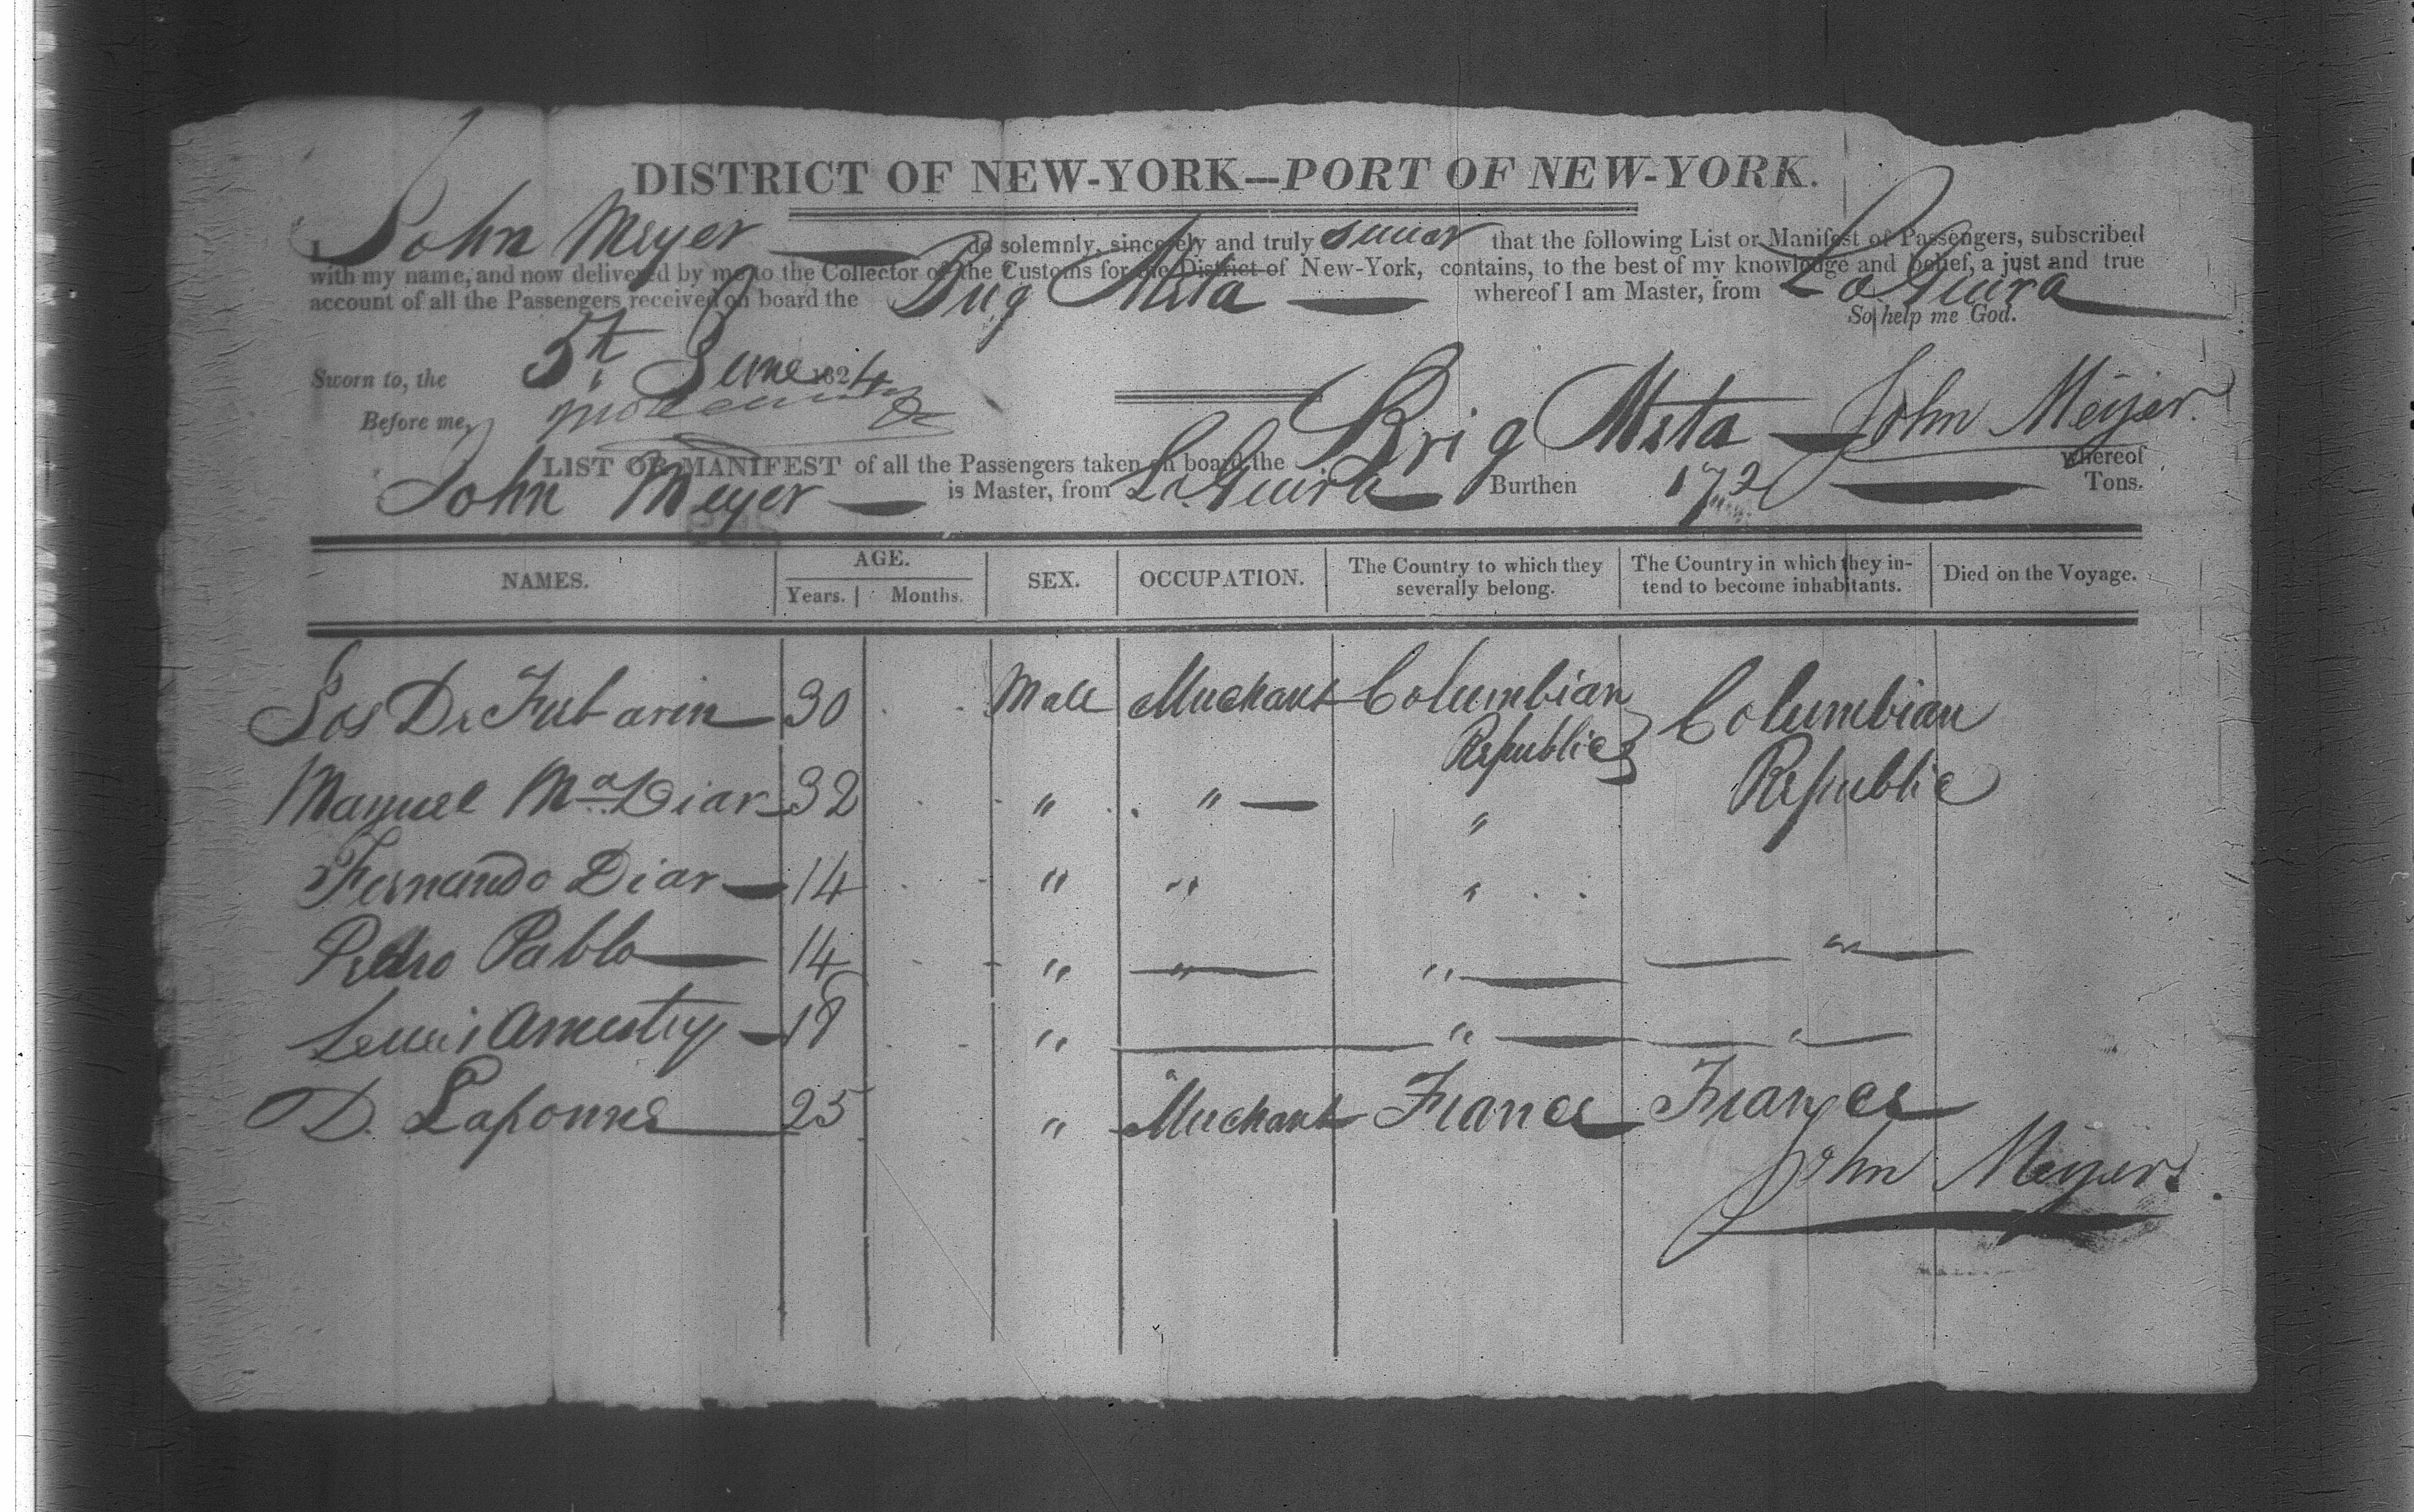 DISTRICT OF NEW-YORK—PORT OF NEW-YORK.
I, John Meyer do solemnly, sincerely and truly swear that the following List or Manifest of Passengers, subscribed
with my name, and now delivered by me to the Collector of the Customs for the District of New-York, contains, to the best of my knowledge and belief, a just and true
account of all the Passengers received on board the Brig Meta whereof I am Master, from LaGuira
So help me God.
Sworn to, the 5th June 1824
Before me,
John Meyer.
LIST OR MANIFEST of all the Passengers taken on board the Brig Meta whereof
John Meyer is Master, from LaGuira Burthen 172 Tons.
NAMES. AGE. Years. Months. SEX. OCCUPATION. The Country to which they severally belong. The Country in which they intend to become inhabitants. Died on the Voyage.
Jos De 30 Male Merchant Columbian Republic Columbian Republic
Manuel Ma Diar 32 " " "
Fernando Diar 14 " " "
Pedro Pablo 14 " " " "
Lewis 18 " " "
D. Laponne 25 " Merchant France France
John Meyer.